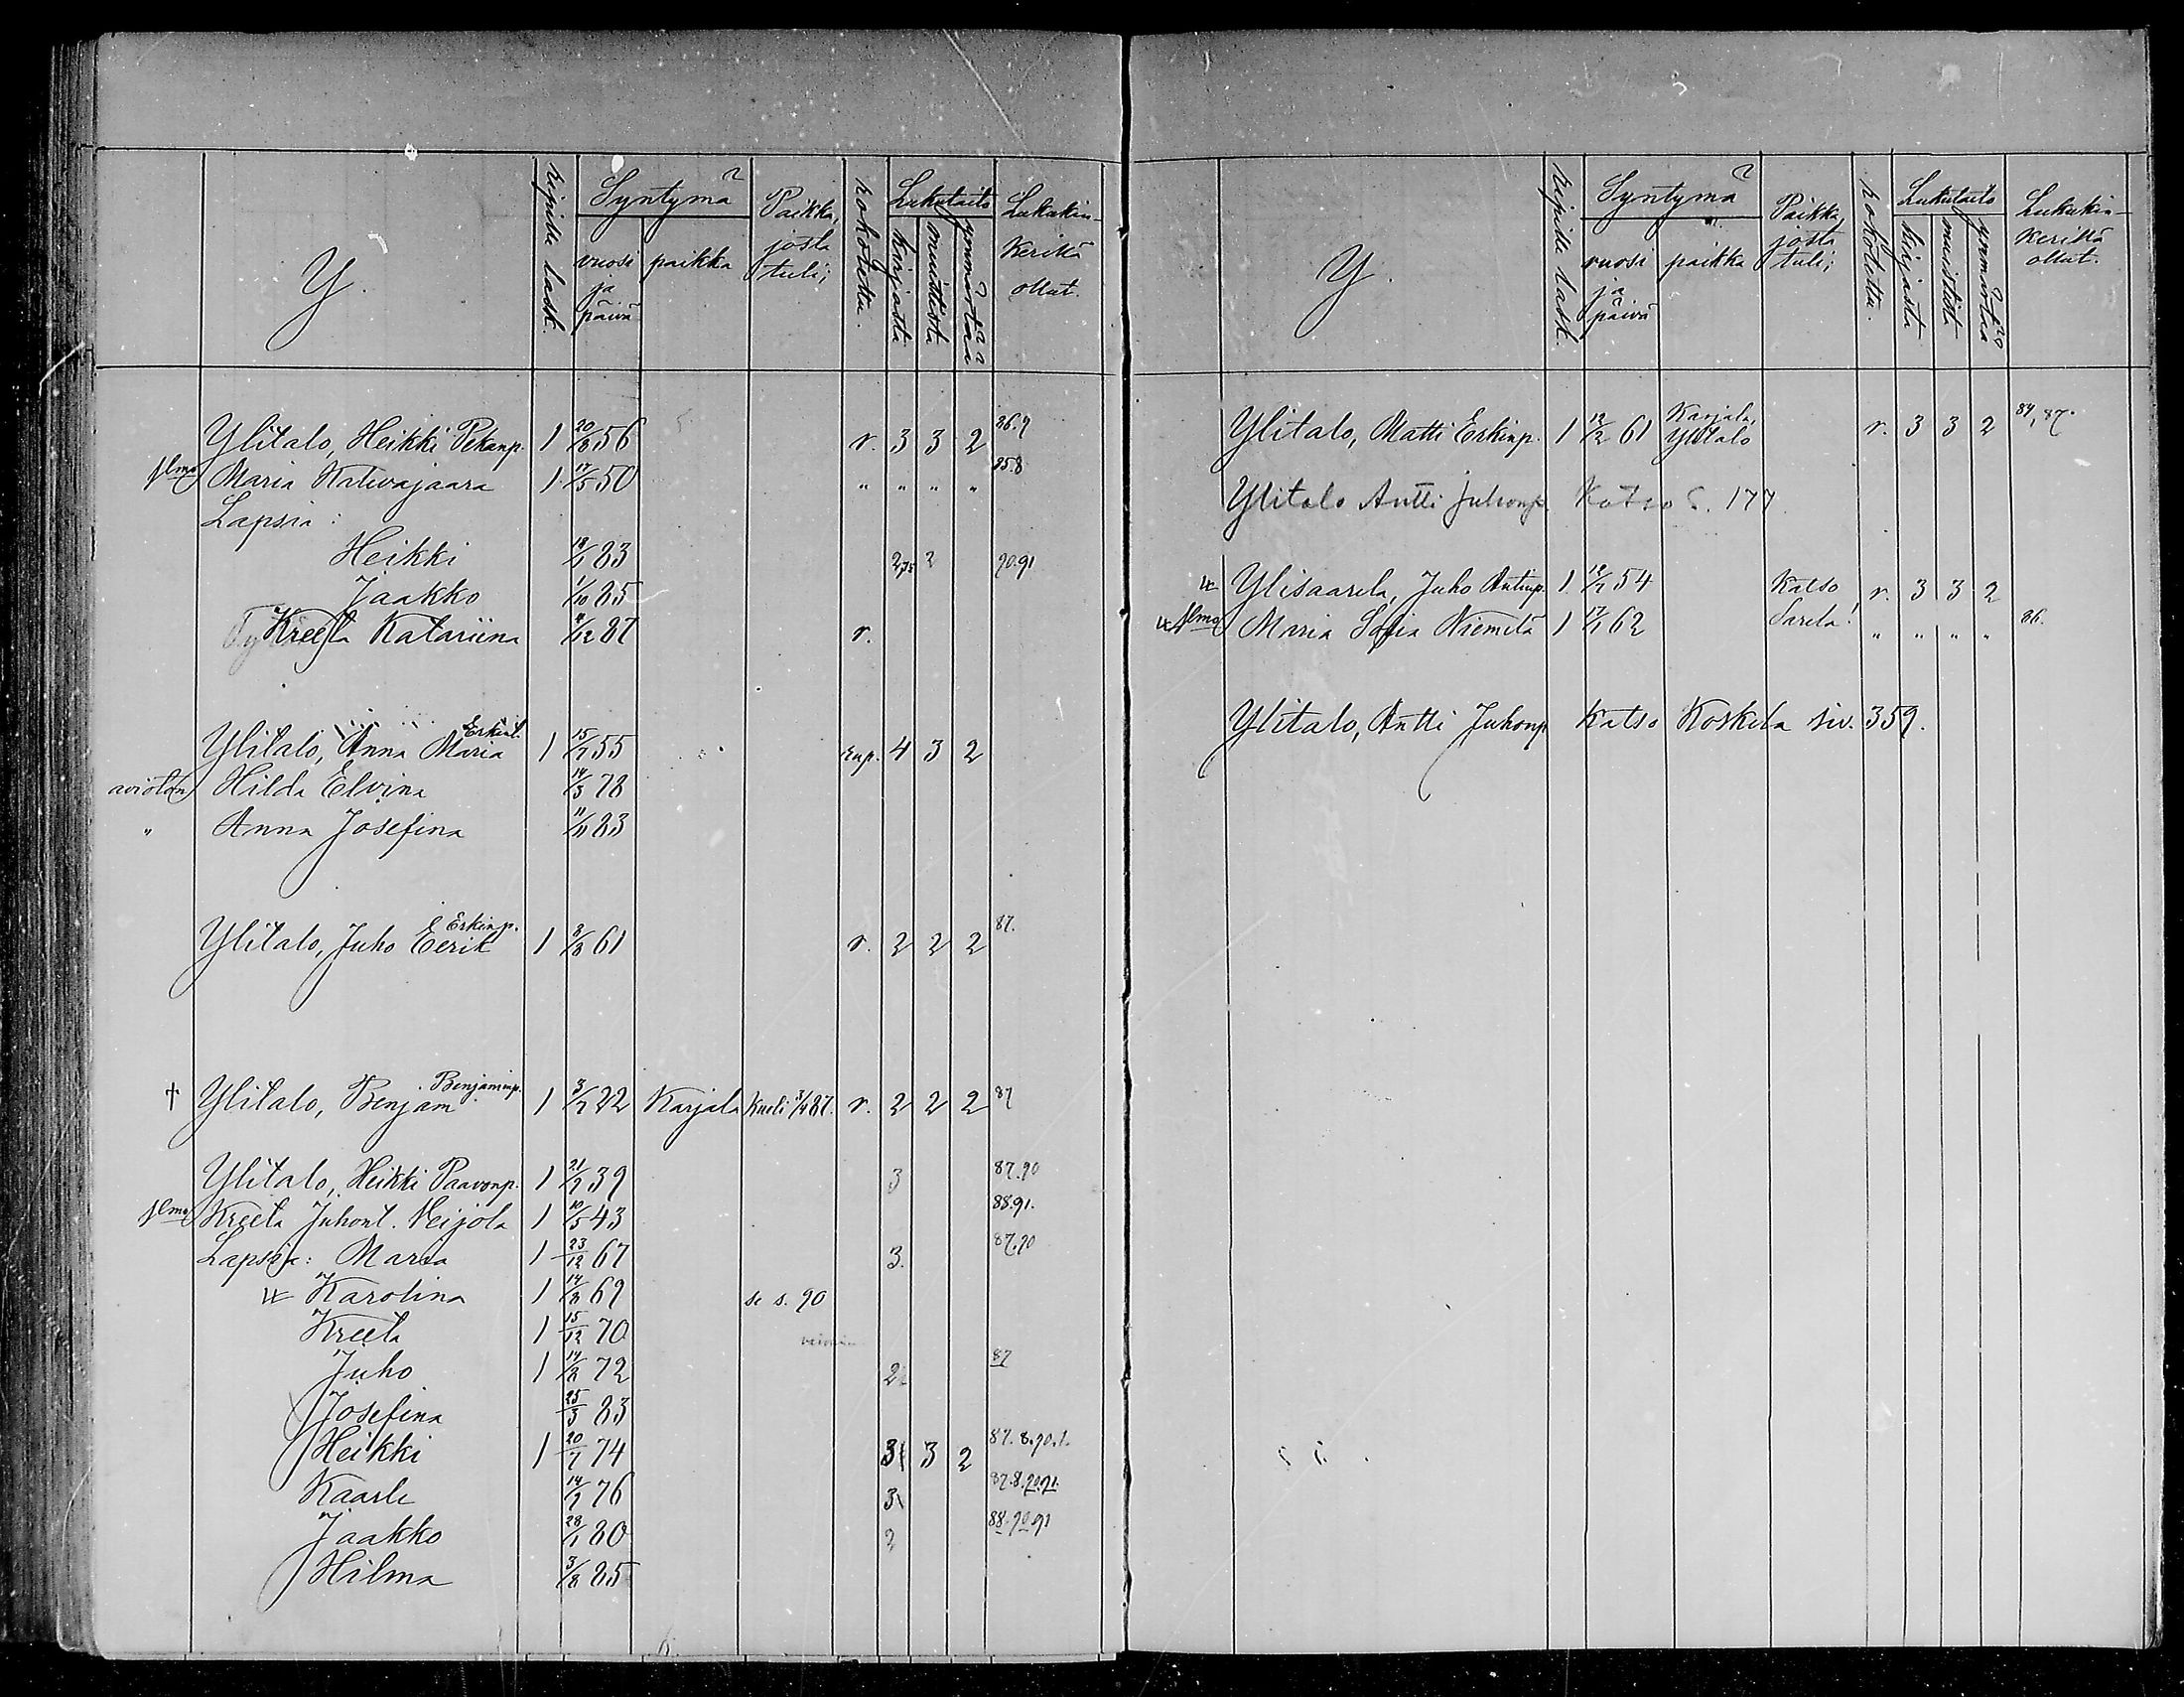 Y.
Ripille lask.
Syntymä
vuosi ja päivä
paikka
Paikka, josta tuli;
rokotettu.
Lukutaito
kirjasta
muistista
ymmärtää
Lukukinkerillä ollut.
Ylitalo, Heikki Pekanp. 1 20/8 56 r. 3 3 2 86.9
Maria Katvajaara 1 17/5 50 " " " " 85.8
Lapsia:
Heikki 18/1 83 2 90.91
Jaakko 1/10 85
Kreeta Katariina 9/12 87 r.
Ylitalo, Anna Maria Erkint. 1 15/7 55 rup. 4 3 2
avioton Hilda Elvina 14/3 78
" Anna Josefina 11/11 83
Ylitalo, Juho Eerik Erkinp. 1 8/8 61 r. 2 2 2 87.
† Ylitalo, Benjam Benjaminp. 1 3/7 22 Karjala kuoli 3/4 87. r. 2 2 2 87
Ylitalo, Heikki Paavonp. 1 21/7 39 3 87.90
Kreeta Juhont. Veijola 1 10/5 43 88.91.
Lapsia: Maria 1 23/12 67 3. 87.90
Karolina 1 14/8 69 se s. 90
Kreeta 1 15/12 70
Juho 1 14/8 72 2 87
Josefina 25/3 83
Heikki 1 20/7 74 3 3 2 87.8.90.1.
Kaarle 14/7 76 3 87.8.90.91.
Jaakko 28/1 80 2 88.90.91
Hilma 3/8 85
Y.
Ripille lask.
Syntymä
vuosi ja päivä
paikka
Paikka, josta tuli;
rokotettu.
Lukutaito
kirjasta
muistista
ymmärtää
Lukukinkerillä ollut.
Ylitalo, Matti Erkinp. 1 12/2 61 Karjala, Ylitalo r. 3 3 2 84, 87.
Ylitalo Antti Juhonp. Katso S. 177
Ylisaarela, Juho Antinp. 1 12/7 54 Katso r. 3 3 2
Maria Sofia Niemelä 1 17/1 62 Sarela! " " " " 86.
Ylitalo, Antti Juhonp. Katso Koskela siv. 359.